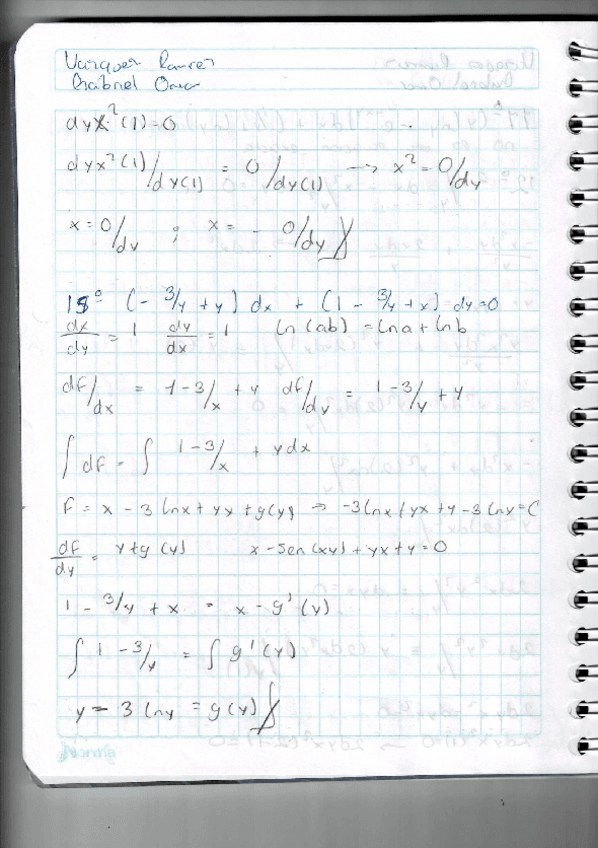 Vazquez Ramirez
Gabriel Omar
dyx²(1) = 0
dyx²(1)/dy(1) = 0/dy(1) → x² = 0/dy
x = 0/dy ; x = - 0/dy
15° (- 3/y + y) dx + (1 - 3/y + x) dy = 0
dx/dy = 1 dy/dx = 1 Ln (ab) = Lna + Lnb
df/dx = 1 - 3/x + y df/dy = 1 - 3/y + y
∫ df = ∫ 1 - 3/x + y dx
F = x - 3 Lnx + yx + g(y) → -3Lnx + yx + y - 3 Lny = C
df/dy = x + g (y) x - 3Ln (xy) + yx + y = 0
1 - 3/y + x = x - g' (y)
∫ 1 - 3/y = ∫ g' (y)
y - 3 Lny = g(y)